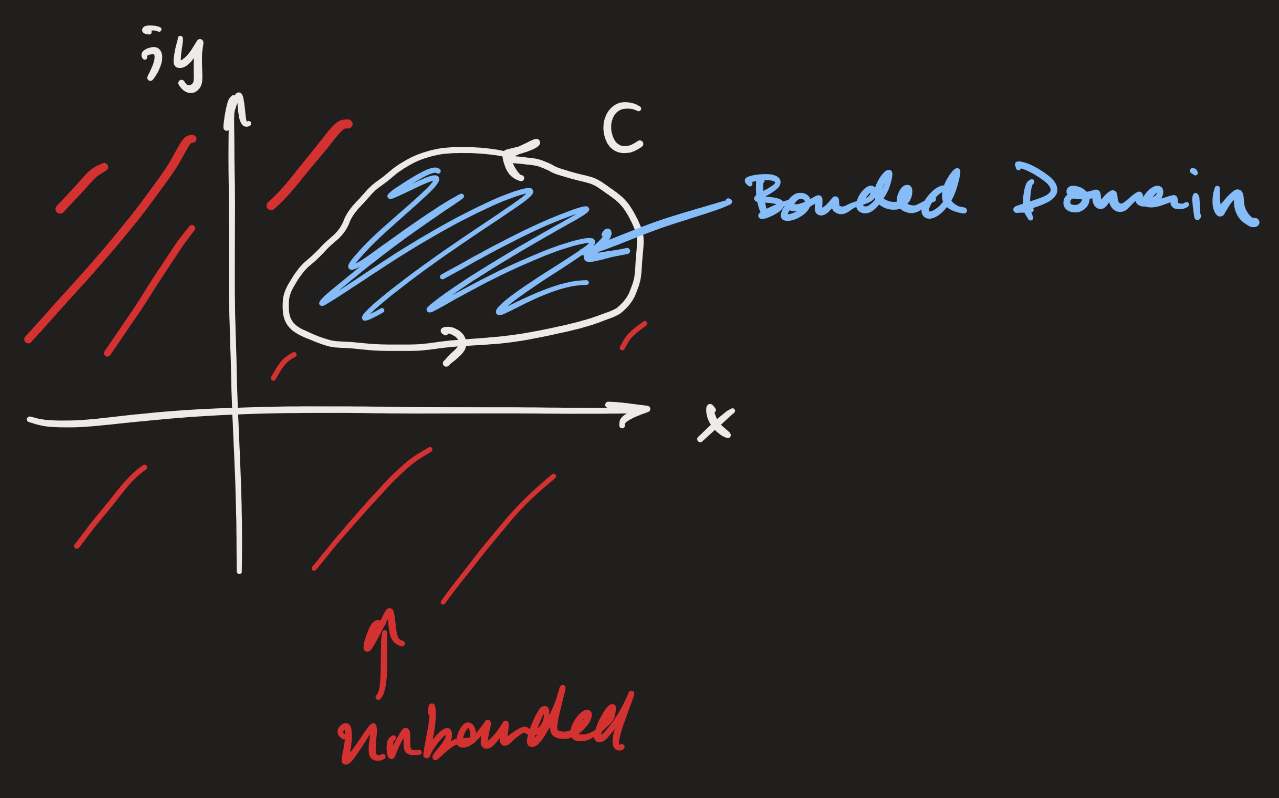 iy
C
Bonded Domain
x
unbounded